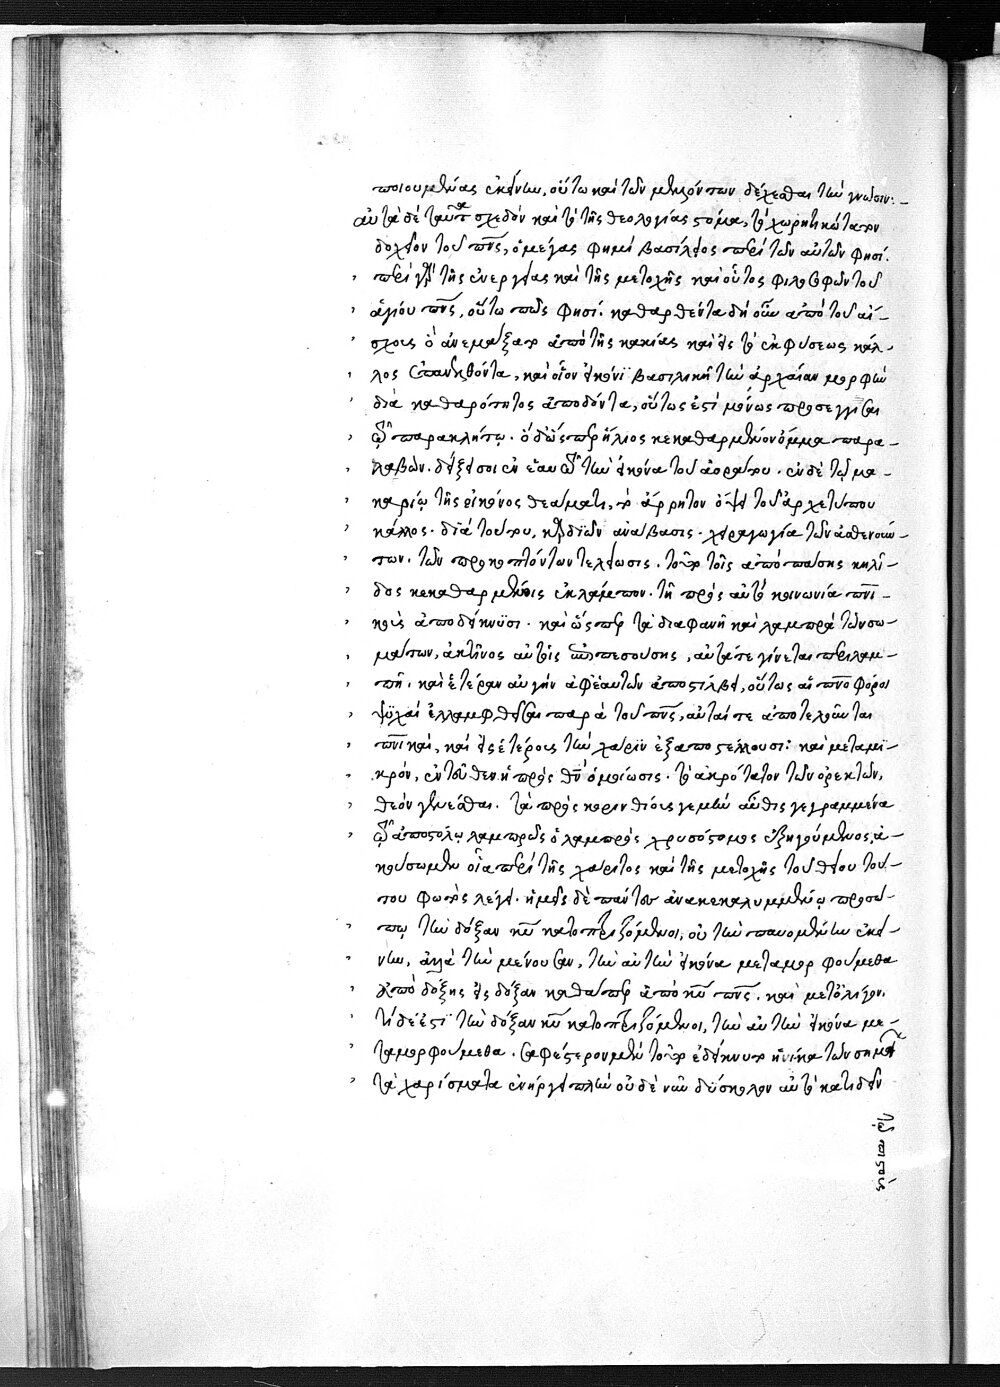 ποιουμένας ἐκείνων, οὕτω καὶ τῶν μειζόνων δέχεσθαι τὴν γνῶσιν:
αὐτὰ δὲ ταῦτα σχεδὸν καὶ τὸ τῆς θεολογίας στόμα, τὸ χωρητικώτατον
δοχεῖον τοῦ πνς, ὁ μέγας φημὶ βασίλειος περὶ τῶν αὐτῶν φησί.
περὶ γὰρ τῆς ἐνεργείας καὶ τῆς μετοχῆς καὶ οὗτος φιλοσοφῶν τοῦ
ἁγίου πνς, οὕτω πως φησί. καθαρθέντα δὴ οὖν ἀπὸ τοῦ αἴ-
σχους ὃ ἀνεμάξατο ἀπὸ τῆς κακίας καὶ εἰς τὸ ἐκ φύσεως κάλ-
λος ἐπανελθόντα, καὶ οἷον εἰκόνι βασιλικῇ τὴν ἀρχαίαν μορφὴν
διὰ καθαρότητος ἀποδόντα, οὕτως ἐστὶ μόνως προσεγγίσαι
τῷ παρακλήτῳ. ὁ δὲ ὥσπερ ἥλιος κεκαθαρμένον ὄμμα παρα-
λαβών. δείξει σοι ἐν ἑαυτῷ τὴν εἰκόνα τοῦ ἀοράτου. ἐν δὲ τῷ μα-
καρίῳ τῆς εἰκόνος θεάματι, τὸ ἄρρητον ὄψει τοῦ ἀρχετύπου
κάλλος. διὰ τούτου, καρδιῶν ἀνάβασις. χειραγωγία τῶν ἀσθενούν-
των. τῶν προκοπτόντων τελείωσις. τοῦτο τοῖς ἀπὸ πάσης κηλί-
δος κεκαθαρμένοις ἐκλάμπον. τῇ πρὸς αὐτὸ κοινωνίᾳ πνι-
κοὺς ἀποδείκνυσι. καὶ ὥσπερ τὰ διαφανῆ καὶ λαμπρὰ τῶν σω-
μάτων, ἀκτῖνος αὐτοῖς ἐμπεσούσης, αὐτά τε γίνεται περιλαμ-
πῆ. καὶ ἑτέραν αὐγὴν ἀφ' ἑαυτῶν ἀποστίλβει, οὕτως αἱ πνοφόροι
ψυχαὶ ἐλλαμφθεῖσαι παρὰ τοῦ πνς, αὐταί τε ἀποτελοῦνται
πνικαί, καὶ εἰς ἑτέρους τὴν χάριν ἐξαποστέλλουσι: καὶ μετὰ μι-
κρόν, ἐντεῦθεν ἡ πρὸς θν ὁμοίωσις. τὸ ἀκρότατον τῶν ὀρεκτῶν,
θεὸν γενέσθαι. τὰ πρὸς κορινθίους γε μὴν αὖθις γεγραμμένα
τῷ ἀποστόλῳ λαμπρῶς ὁ λαμπρὸς χρυσόστομος ἐξηγούμενος, ἀ-
κούσωμεν οἷα περὶ τῆς χάριτος καὶ τῆς μετοχῆς τοῦ θείου τού-
του φωτὸς λέγει. ἡμεῖς δὲ πάντες ἀνακεκαλυμμένῳ προσώ-
πῳ τὴν δόξαν κυ κατοπτριζόμενοι, οὐ τὴν παυομένην ἐκεί-
νην, ἀλλὰ τὴν μένουσαν, τὴν αὐτὴν εἰκόνα μεταμορφούμεθα
ἀπὸ δόξης εἰς δόξαν καθάπερ ἀπὸ κυ πνς. καὶ μετ' ὀλίγον.
τί δέ ἐστι τὴν δόξαν κυ κατοπτριζόμενοι, τὴν αὐτὴν εἰκόνα με-
ταμορφούμεθα. σαφέστερον μὲν τοῦτο ἐδείκνυτο ἡνίκα τῶν σημείων
τὰ χαρίσματα ἐνήργει πλὴν οὐδὲ νῦν δύσκολον αὐτὸ κατιδεῖν